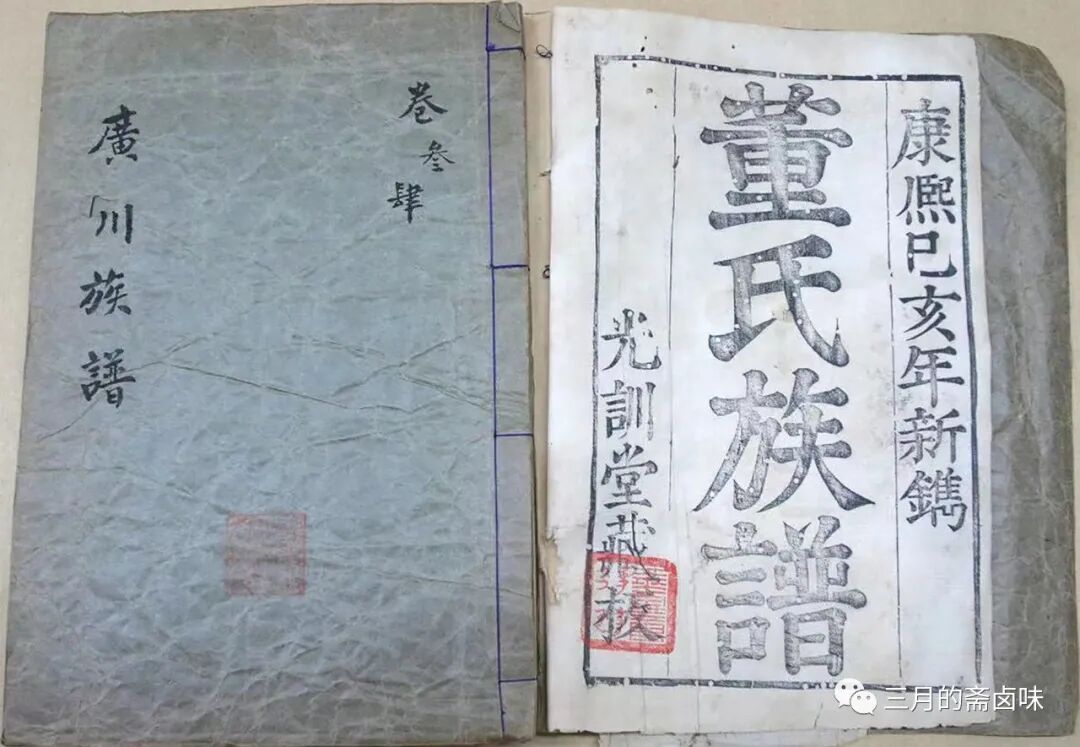 卷叁肆
廣川族譜
康熙已亥年新鐫
董氏族譜
光訓堂藏板
三月的斋卤味